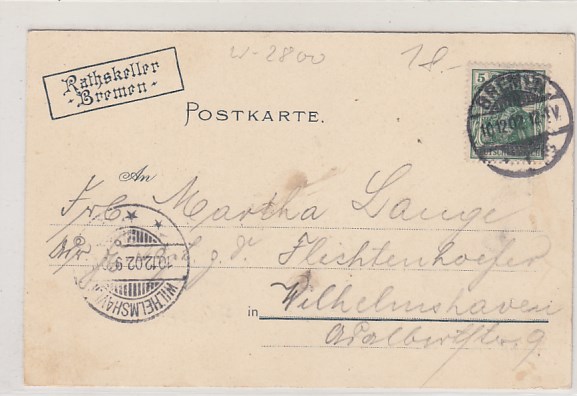 W-2800
18-
Rathskeller
- Bremen -
5
BREMEN
10.12.02.12-1V.
POSTKARTE.
An
Frl. Martha Lange
Flichtenhoefer
WILHELMSHAVEN
10.12.02.9
in Wilhelmshaven
Adalbertstr. 9